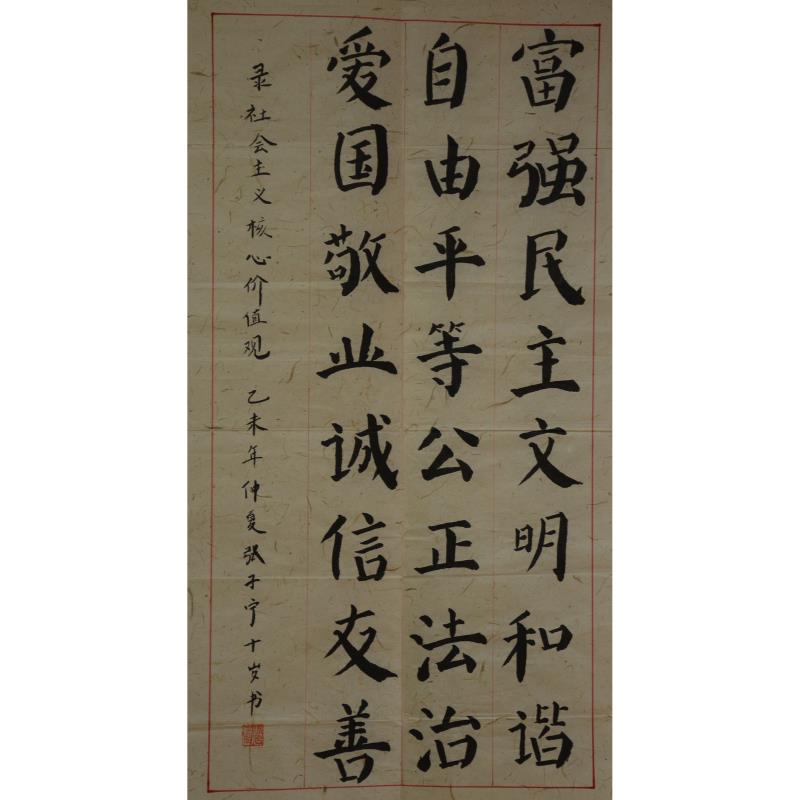 富强民主文明和谐
自由平等公正法治
爱国敬业诚信友善
录社会主义核心价值观 乙未年仲夏张子宁十岁书